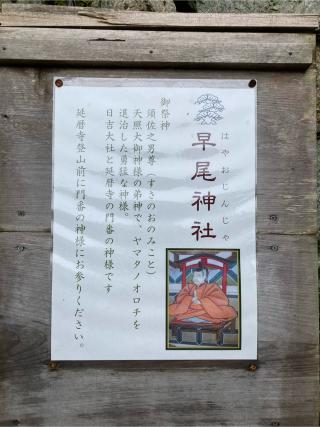 早尾神社
はやおじんじゃ
御祭神
須佐之男尊（すさのおのみこと）
天照大御神様の弟神で、ヤマタノオロチを
退治した勇猛な神様。
日吉大社と延暦寺の門番の神様です
延暦寺登山前に門番の神様にお参りください。